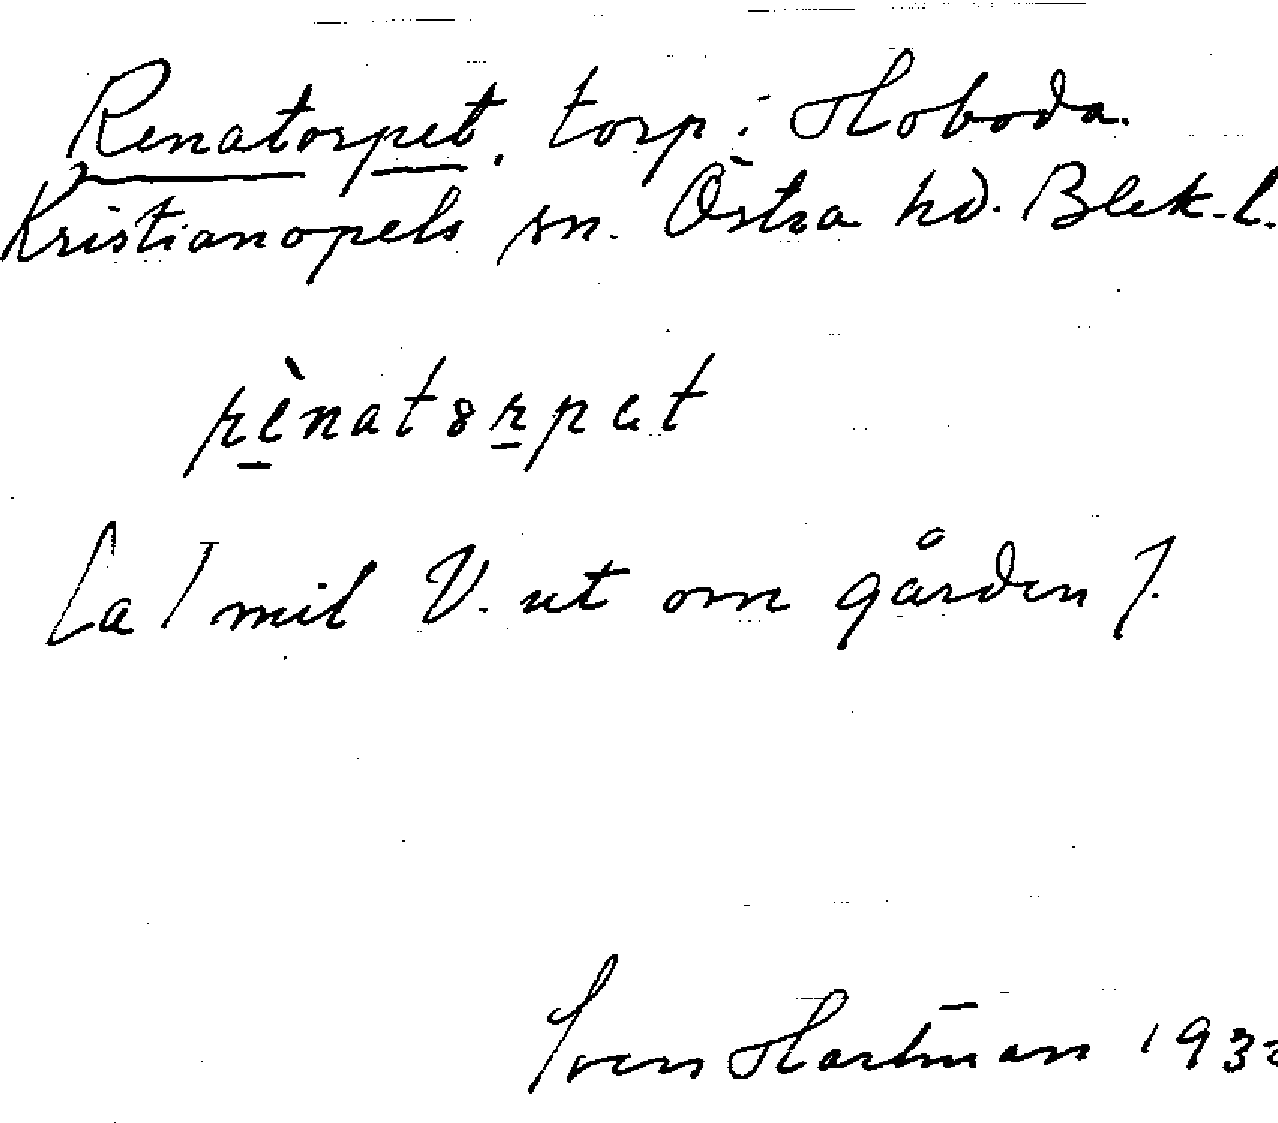 Renatorpet, torp i Hoboda.
Kristianopels sn. Östra hd. Blek. l.
rènatorpet
La 1 mil V. ut om gården 7.
Sven Hartman 193